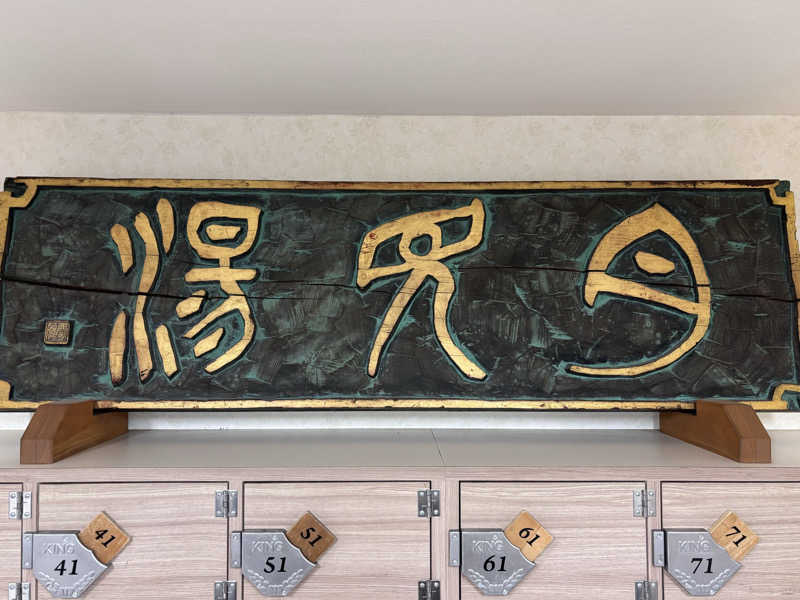 月見湯
41
KING
41
51
KING
51
61
KING
61
71
KING
71